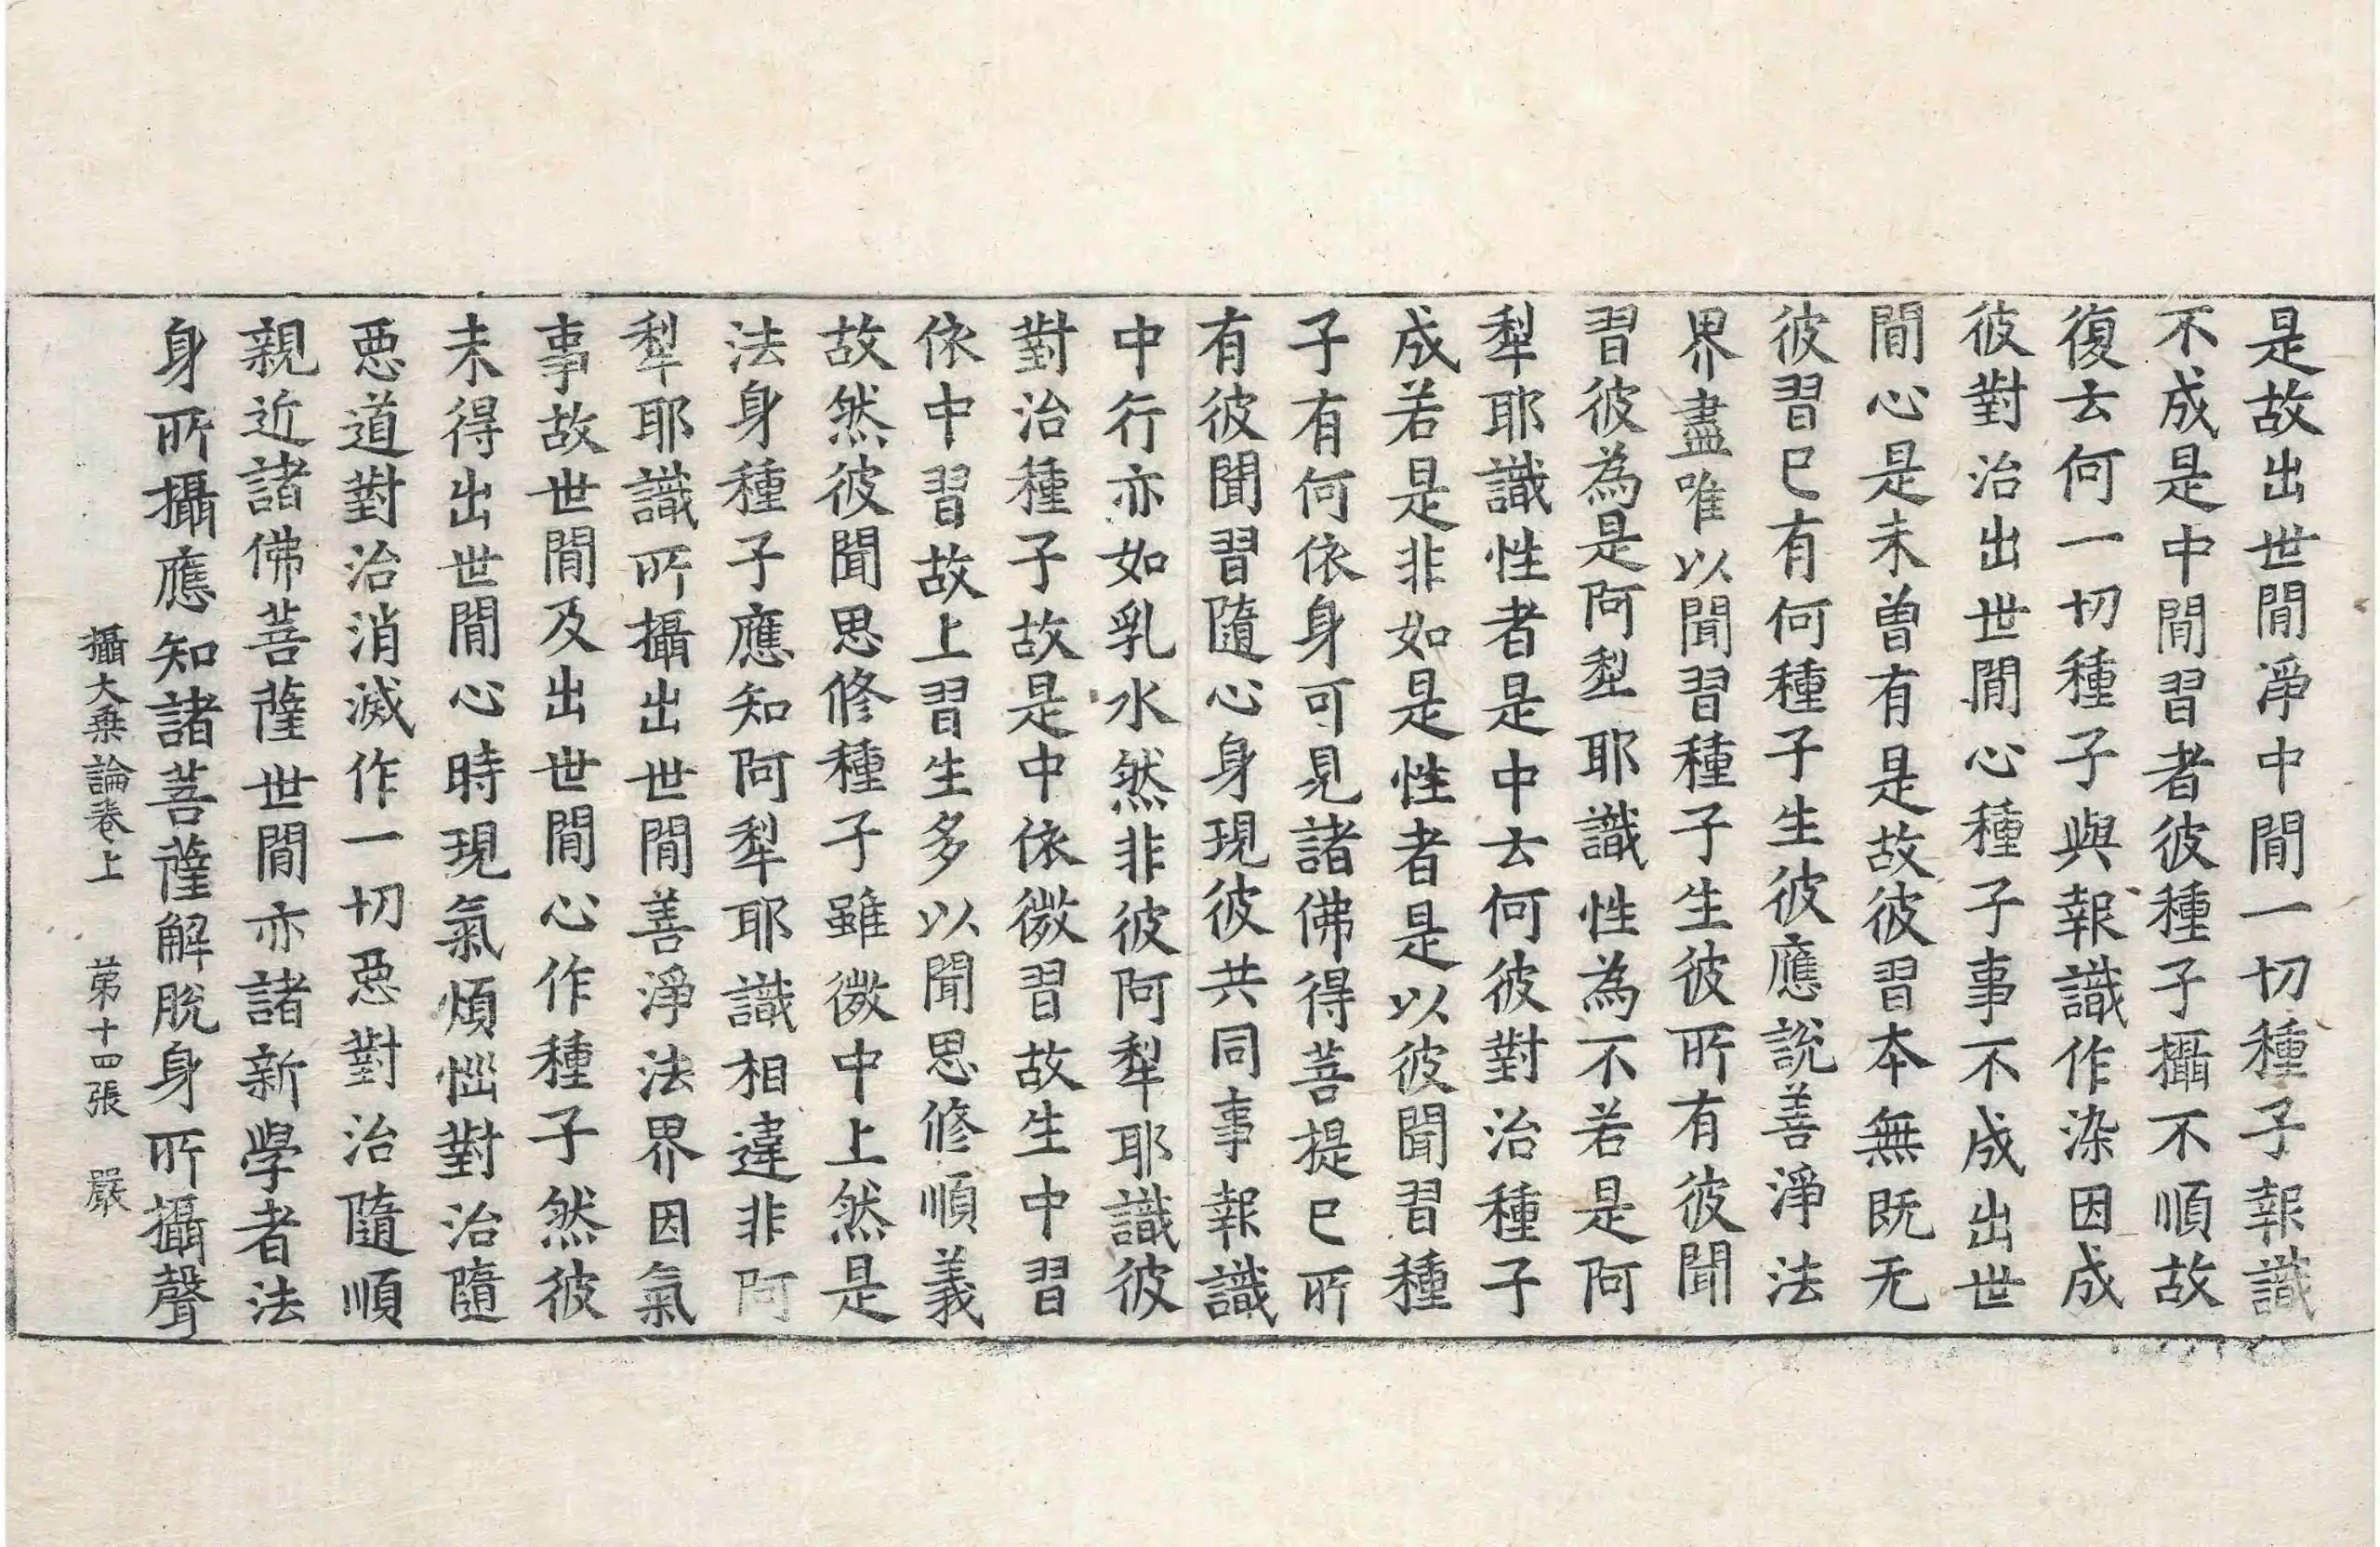 是故出世閒淨中閒一切種子報識
不成是中閒習者彼種子攝不順故
復云何一切種子與報識作染因成
彼對治出世閒心種子事不成出世
閒心是未曽有是故彼習本無既无
彼習已有何種子生彼應說善淨法
界盡唯以聞習種子生彼所有彼聞
習彼為是阿犁耶識性為不若是阿
犁耶識性者是中云何彼對治種子
成若是非如是性者是以彼聞習種
子有何依身可見諸佛得菩提已所
有彼聞習隨心身現彼共同事報識
中行亦如乳水然非彼阿犁耶識彼
對治種子故是中依微習故生中習
依中習故上習生多以聞思修順義
故然彼聞思修種子雖微中上然是
法身種子應知阿犁耶識相違非阿
犁耶識所攝出世閒善淨法界因氣
事故世閒及出世閒心作種子然彼
未得出世閒心時現氣煩惱對治隨
惡道對治消滅作一切惡對治隨順
親近諸佛菩薩世閒亦諸新學者法
身所攝應知諸菩薩解脫身所攝聲
攝大乗論卷上 第十四張 嚴